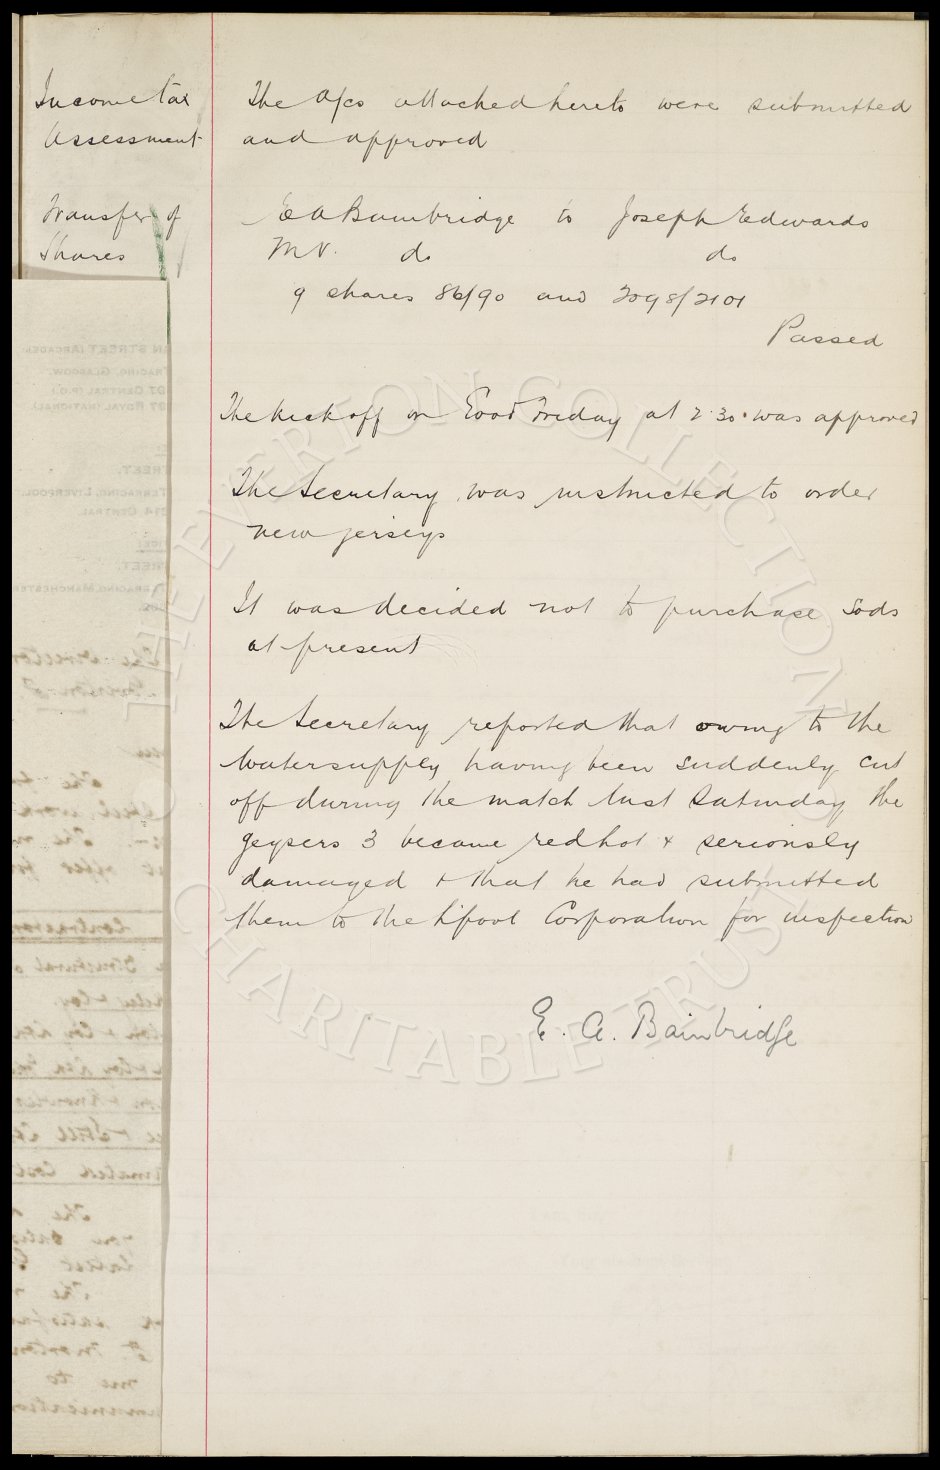 Income tax
Assessment
The a/cs attached hereto were submitted
and approved
Transfer of
Shares
E A Bainbridge to Joseph Edwards
M V. do do
9 shares 86/90 and 2098/2101
Passed
The kick off on Good Friday at 2.30 was approved
The Secretary was instructed to order
new jerseys
It was decided not to purchase Sods
at present
The Secretary reported that owing to the
Watersupply having been suddenly cut
off during the match last Saturday the
geysers 3 became redhot & seriously
damaged & that he had submitted
them to the L'pool Corporation for inspection
E. A. Bainbridge
THE EVERTON COLLECTION
CHARITABLE TRUST